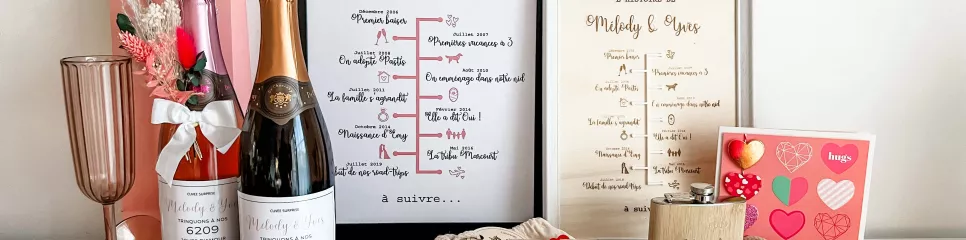 CUVEE SURPRISE
Mélody & Yves
TRINQUONS À NOS
6209
CUVEE SURPRISE
Mélody & Yves
TRINQUONS À NOS
Décembre 2006
Premier baiser
Juillet 2007
Premières vacances à 3
Juillet 2008
On adopte Pastis
Août 2010
On emménage dans notre nid
Juillet 2011
La famille s'agrandit
Février 2014
Elle a dit Oui !
Octobre 2014
Naissance d'Emy
Mai 2016
La tribu Marcourt
Juillet 2019
Début de nos road-trips
à suivre...
L'HISTOIRE DE
Mélody & Yves
Premier baiser
Premières vacances à 3
On adopte Pastis
On emménage dans notre nid
La famille s'agrandit
Elle a dit Oui !
Naissance d'Emy
La tribu Marcourt
Début de nos road-trips
à suiv
hugs